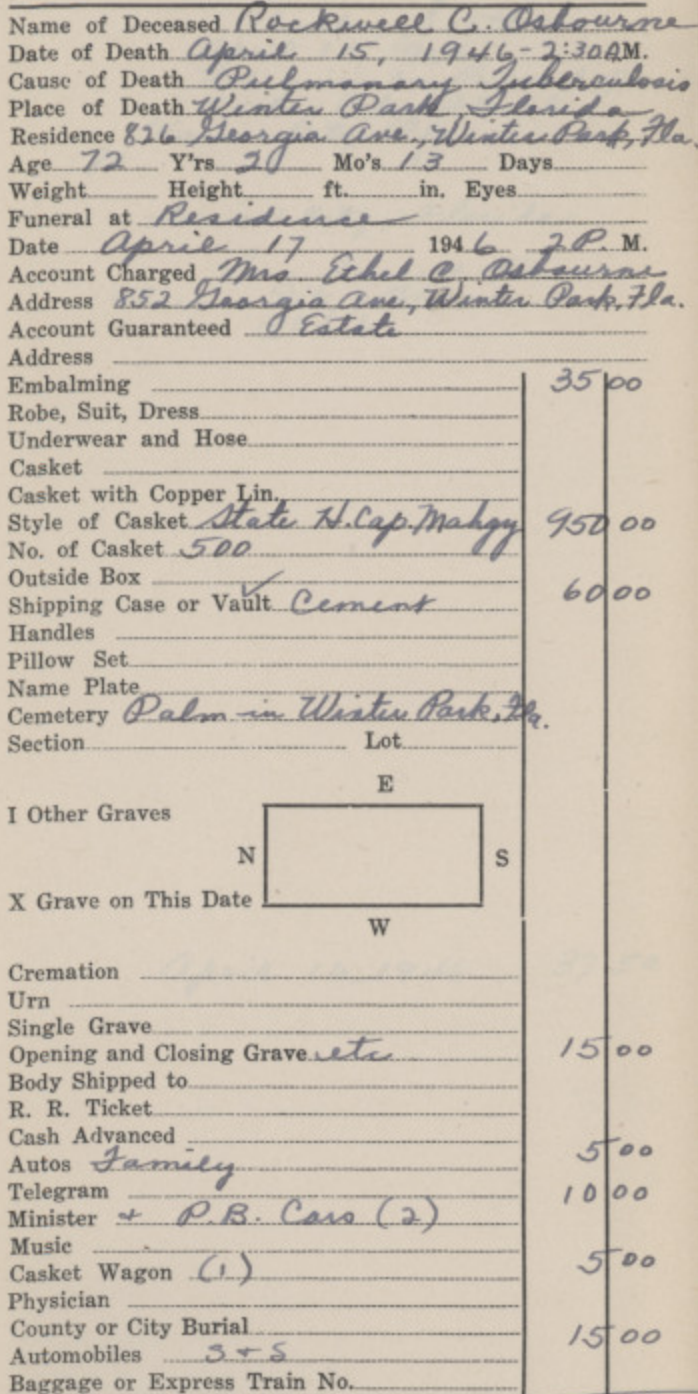 Name of Deceased Rockwell C. Osbourne
Date of Death April 15, 1946 - 2:30 A.M.
Cause of Death Pulmonary Tuberculosis
Place of Death Winter Park, Florida
Residence 826 Georgia Ave., Winter Park, Fla.
Age 72 Y'rs 2 Mo's 13 Days
Weight Height ft. in. Eyes
Funeral at Residence
Date April 17 1946 2 P. M.
Account Charged Mrs Ethel C. Osbourne
Address 852 Georgia Ave, Winter Park, Fla.
Account Guaranteed Estate
Address
Embalming 35 00
Robe, Suit, Dress
Underwear and Hose
Casket
Casket with Copper Lin.
Style of Casket State H. Cap. Mahgy 950 00
No. of Casket 500
Outside Box
Shipping Case or Vault ✓ Cement 60 00
Handles
Pillow Set
Name Plate
Cemetery Palm in Winter Park, Fla.
Section Lot
E
I Other Graves
N S
X Grave on This Date
W
Cremation
Urn
Single Grave
Opening and Closing Grave etc 15 00
Body Shipped to
R. R. Ticket
Cash Advanced
Autos Family 5 00
Telegram
Minister + P.B. Cars (2) 10 00
Music
Casket Wagon (1) 5 00
Physician
County or City Burial
Automobiles S + S 15 00
Baggage or Express Train No.